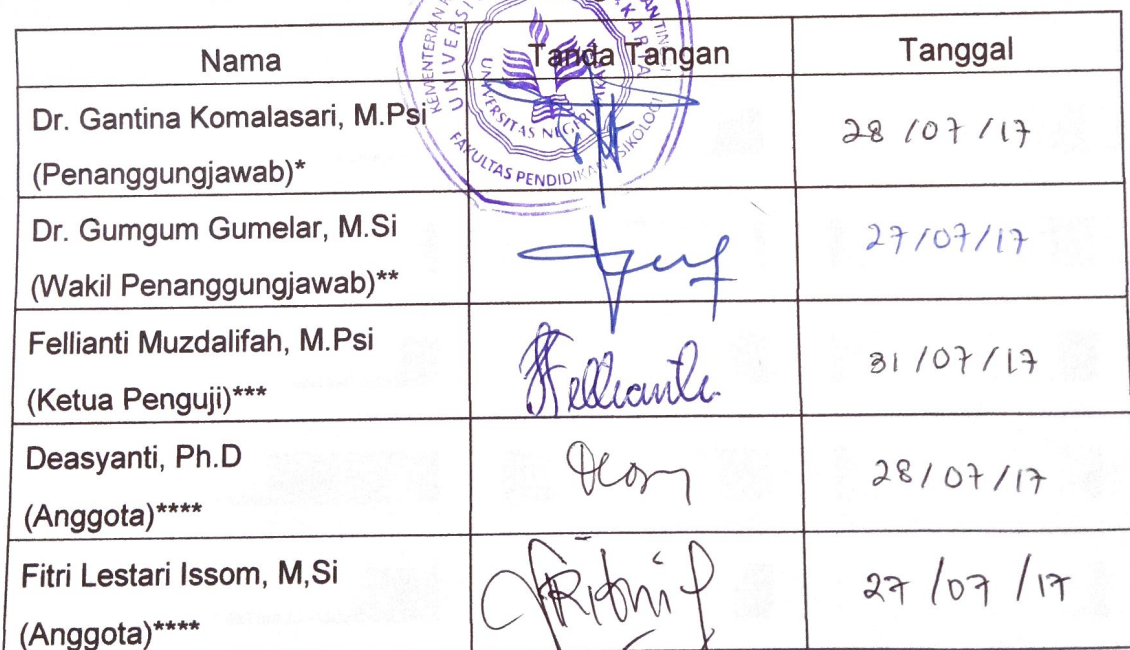 Nama Tanda Tangan Tanggal
Dr. Gantina Komalasari, M.Psi
(Penanggungjawab)* 28/07/17
Dr. Gumgum Gumelar, M.Si
(Wakil Penanggungjawab)** 27/07/17
Fellianti Muzdalifah, M.Psi
(Ketua Penguji)*** Fellianti 31/07/17
Deasyanti, Ph.D
(Anggota)**** 28/07/17
Fitri Lestari Issom, M,Si
(Anggota)**** 27/07/17
KEMENTERIAN
UNIVERSI
UNIVERSITAS NEGERI
FAKULTAS PENDIDIKAN PSIKOLOGI